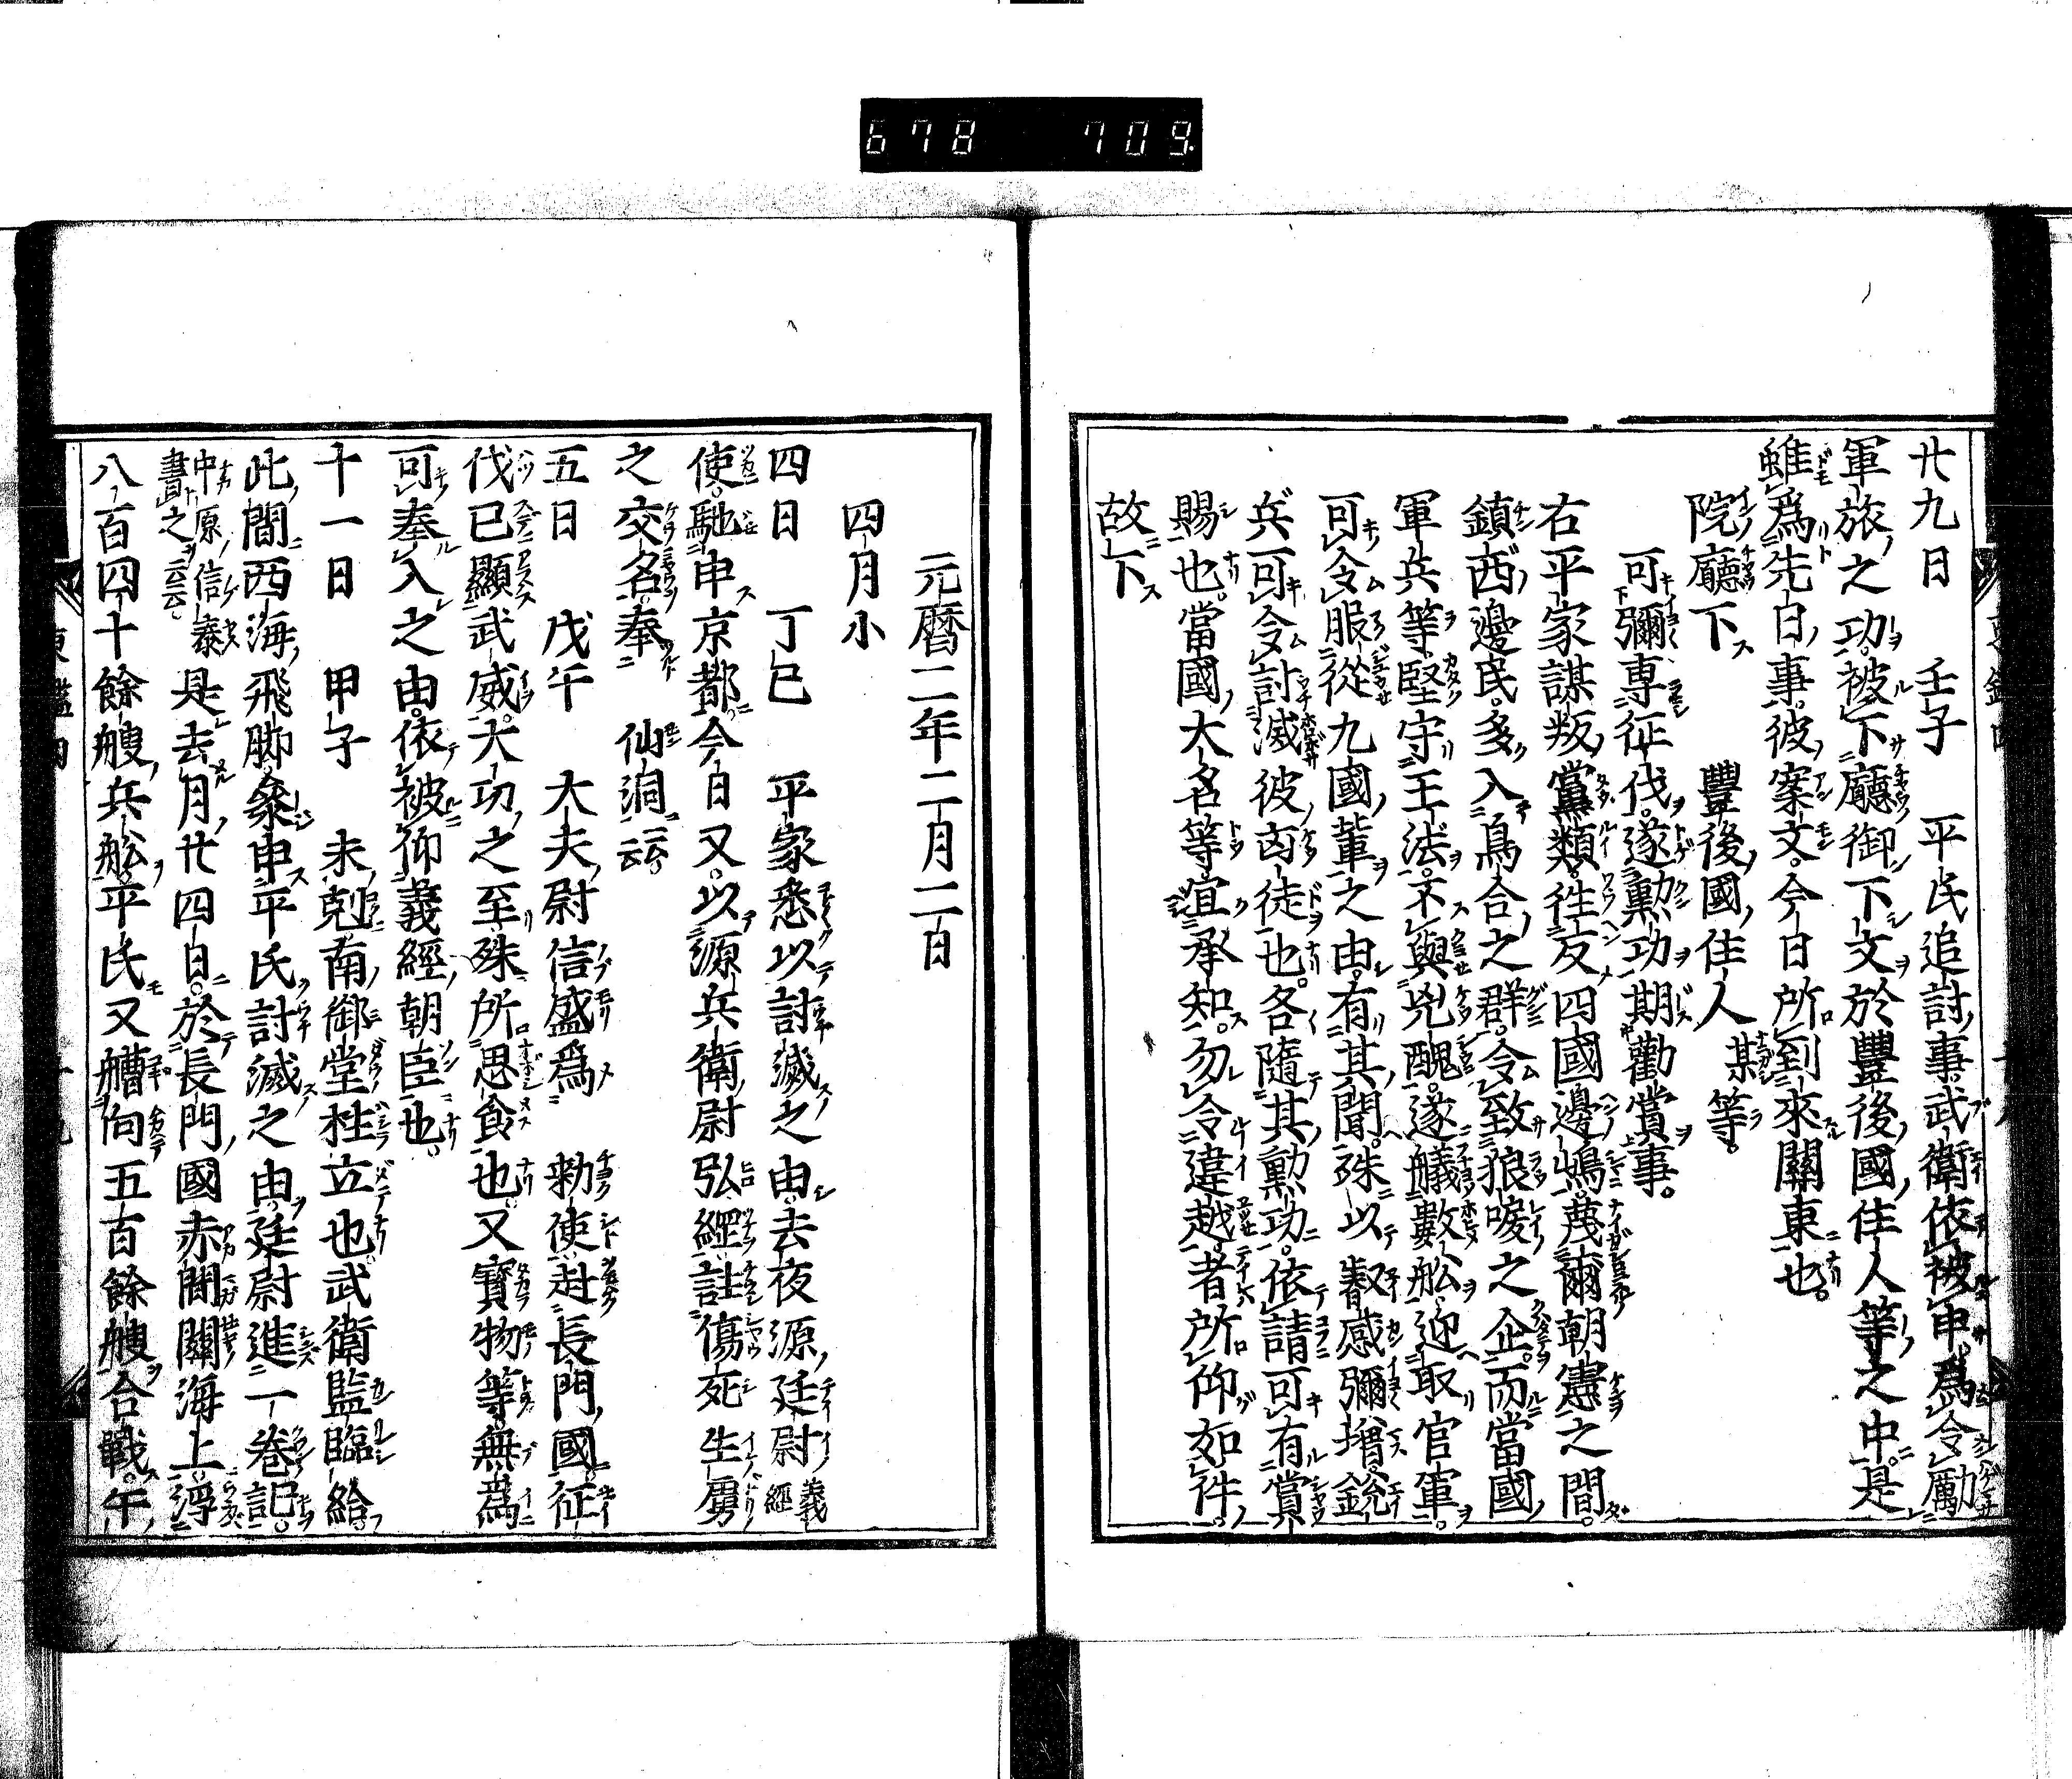 678 709
廿九日 壬子 平氏追討事武衛依被申爲令勵
軍旅之功被下廳御下文於豐後國住人等之中是
雖爲先日事彼案文今日所到來關東也
院廳下 豐後國住人某等
可彌專征伐遂勳功期勸賞事
右平家謀叛黨類往反四國邊嶋蔑爾朝憲之間
鎮西邊民多入烏合之群令致狼唳之企而當國
軍兵等堅守王法不與兇醜遂艤數舩迎取官軍
可令服從九國輩之由有其聞殊以叡感彌増銳
兵可令討滅彼凶徒也各隨其勳功依請可有賞
賜也當國大名等宜承知勿令違越者所仰如件
故下
元曆二年二月二日
四月小
四日 丁巳 平家悉以討滅之由去夜源廷尉義經
使馳申京都今日又以源兵衛尉弘經註傷死生虜
之交名奉 仙洞云云
五日 戊午 大夫尉信盛爲 勅使赴長門國征
伐已顯武威大功之至殊所思食也又寶物等無爲
可奉入之由依被仰義經朝臣也
十一日 甲子 未剋南御堂柱立也武衛監臨給
此間西海飛脚參申平氏討滅之由廷尉進一卷記
中原信泰書之云云是去月廿四日於長門國赤間關海上浮
八百四十餘艘兵舩平氏又艚向五百餘艘合戰午